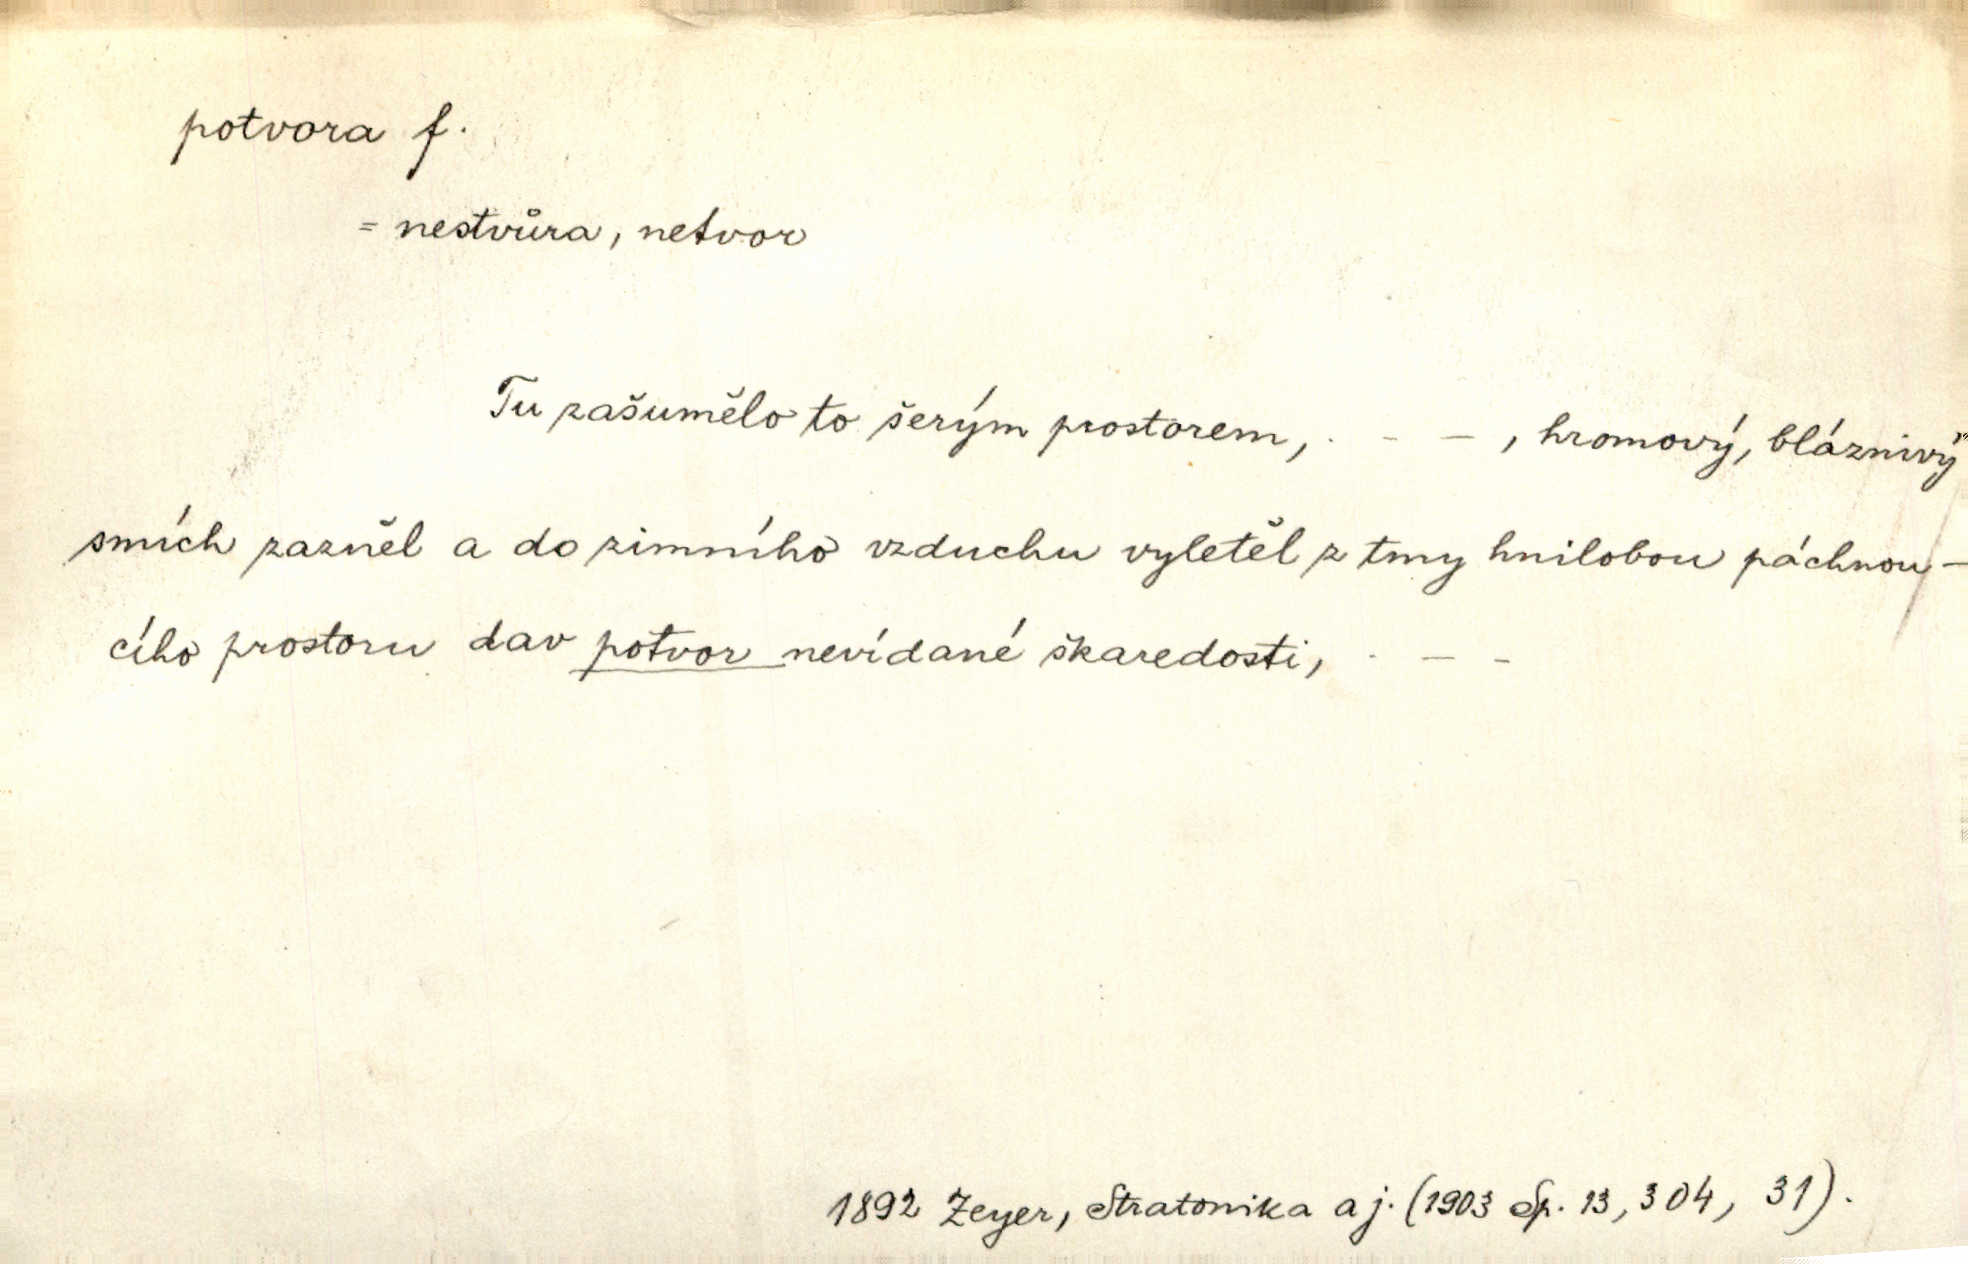 potvora f.
= nestvůra, netvor
Tu zašumělo to šerým prostorem, - - - , hromový, bláznivý
smích zazněl a do zimního vzduchu vyletěl z tmy hnilobou páchnou-
cího prostoru dav potvor nevídané škaredosti, - - -
1892 Zeyer, Stratonika a j. (1903 Sp. 13, 304, 31).